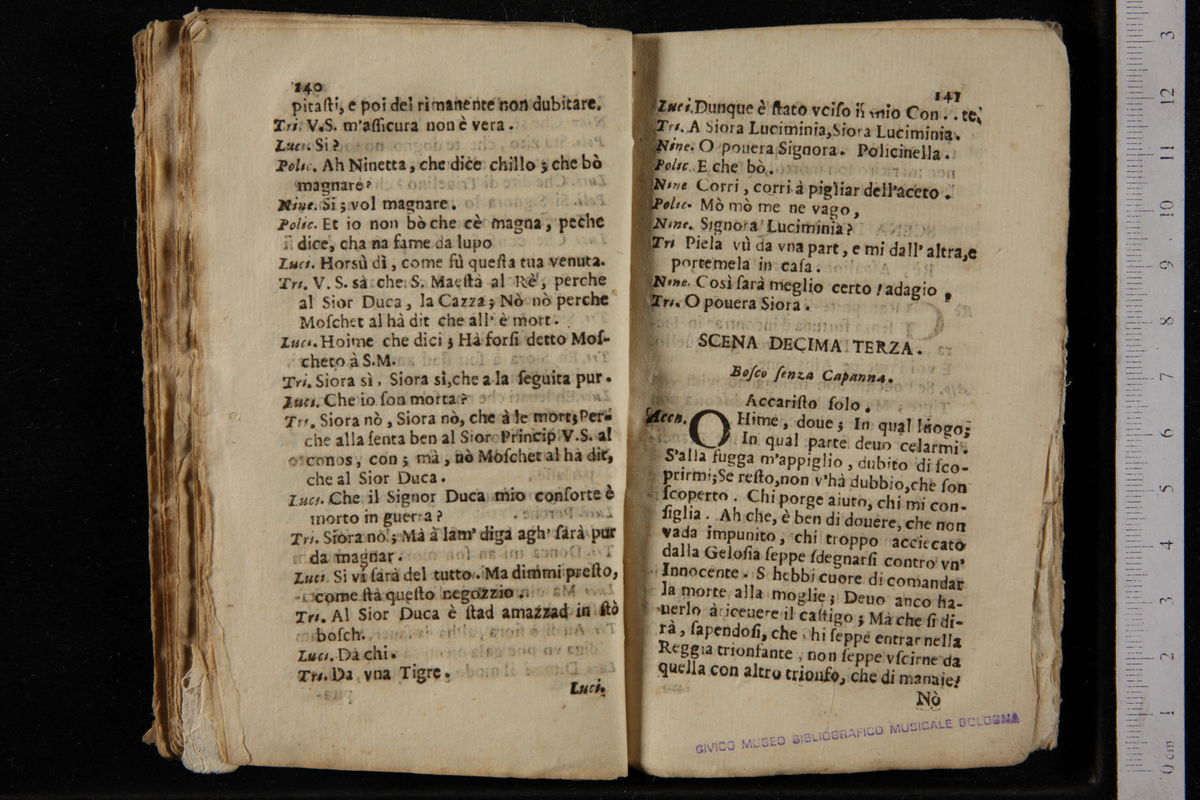 140
pitaſti, e poi del rimanente non dubitare.
Tri. V.S. m'aſſicura non è vera.
Luci. Si?
Polic. Ah Ninetta, che dice chillo; che bò
magnare?
Nine. Si; vol magnare.
Polic. Et io non bò che cè magna, peche
dice, cha na fame da lupo
Luci. Horsù dì, come fù queſta tua venuta.
Tri. V. S. sà che S. Maeſtà al Rè, perche
al Sior Duca, la Cazza; Nò nò perche
Moſchet al hà dit che all' è mort.
Luci. Hoime che dici; Hà forſi detto Moſ-
cheto à S.M.
Tri. Siora sì, Siora sì, che a la ſeguita pur.
Luci. Che io ſon morta?
Tri. Siora nò, Siora nò, che à le mort; Per-
che alla ſenta ben al Sior Princip V.S. al
conos, con; mà, nò Moſchet al hà dit,
che al Sior Duca.
Luci. Che il Signor Duca mio conſorte è
morto in guerra?
Tri. Siora nò; Mà à lam' diga agh' ſarà pur
da magnar.
Luci Si vi ſarà del tutto. Ma dimmi preſto,
come ſtà queſto negozzio.
Tri. Al Sior Duca è ſtad amazzad in ſtò
boſch.
Luci. Dà chi.
Tri. Da vna Tigre.
Luci.
141
Luci. Dunque è ſtato vciſo il mio Con..te,
Tri. A Siora Luciminia, Siora Luciminia.
Nine. O pouera Signora. Policinella.
Polic. E che bò.
Nine Corri, corri à pigliar dell'aceto.
Polic. Mò mò me ne vago,
Nine. Signora Luciminia?
Tri Piela vù da vna part, e mi dall' altra, e
portemela in caſa.
Nine. Così ſarà meglio certo! adagio,
Tri. O pouera Siora.
SCENA DECIMA TERZA.
Boſco ſenza Capanna.
Accariſto ſolo.
Accn. OHime, doue; In qual luogo;
In qual parte deuo celarmi.
S'alla fugga m'appiglio, dubito di ſco-
prirmi; Se reſto, non v'hà dubbio, che ſon
ſcoperto. Chi porge aiuto, chi mi con-
ſiglia. Ah che, è ben di douere, che non
vada impunito, chi troppo acciecato
dalla Geloſia ſeppe ſdegnarſi contro vn'
Innocente. S hebbi cuore di comandar
la morte alla moglie; Deuo anco ha-
uerlo à riceuere il caſtigo; Ma che ſi di-
rà, ſapendoſi, che chi ſeppe entrar nella
Reggia trionfante, non ſeppe vſcirne da
quella con altro trionfo, che di manaie!
Nò
CIVICO MUSEO BIBLIOGRAFICO MUSICALE BOLOGNA
0 cm 1 2 3 4 5 6 7 8 9 10 11 12 3